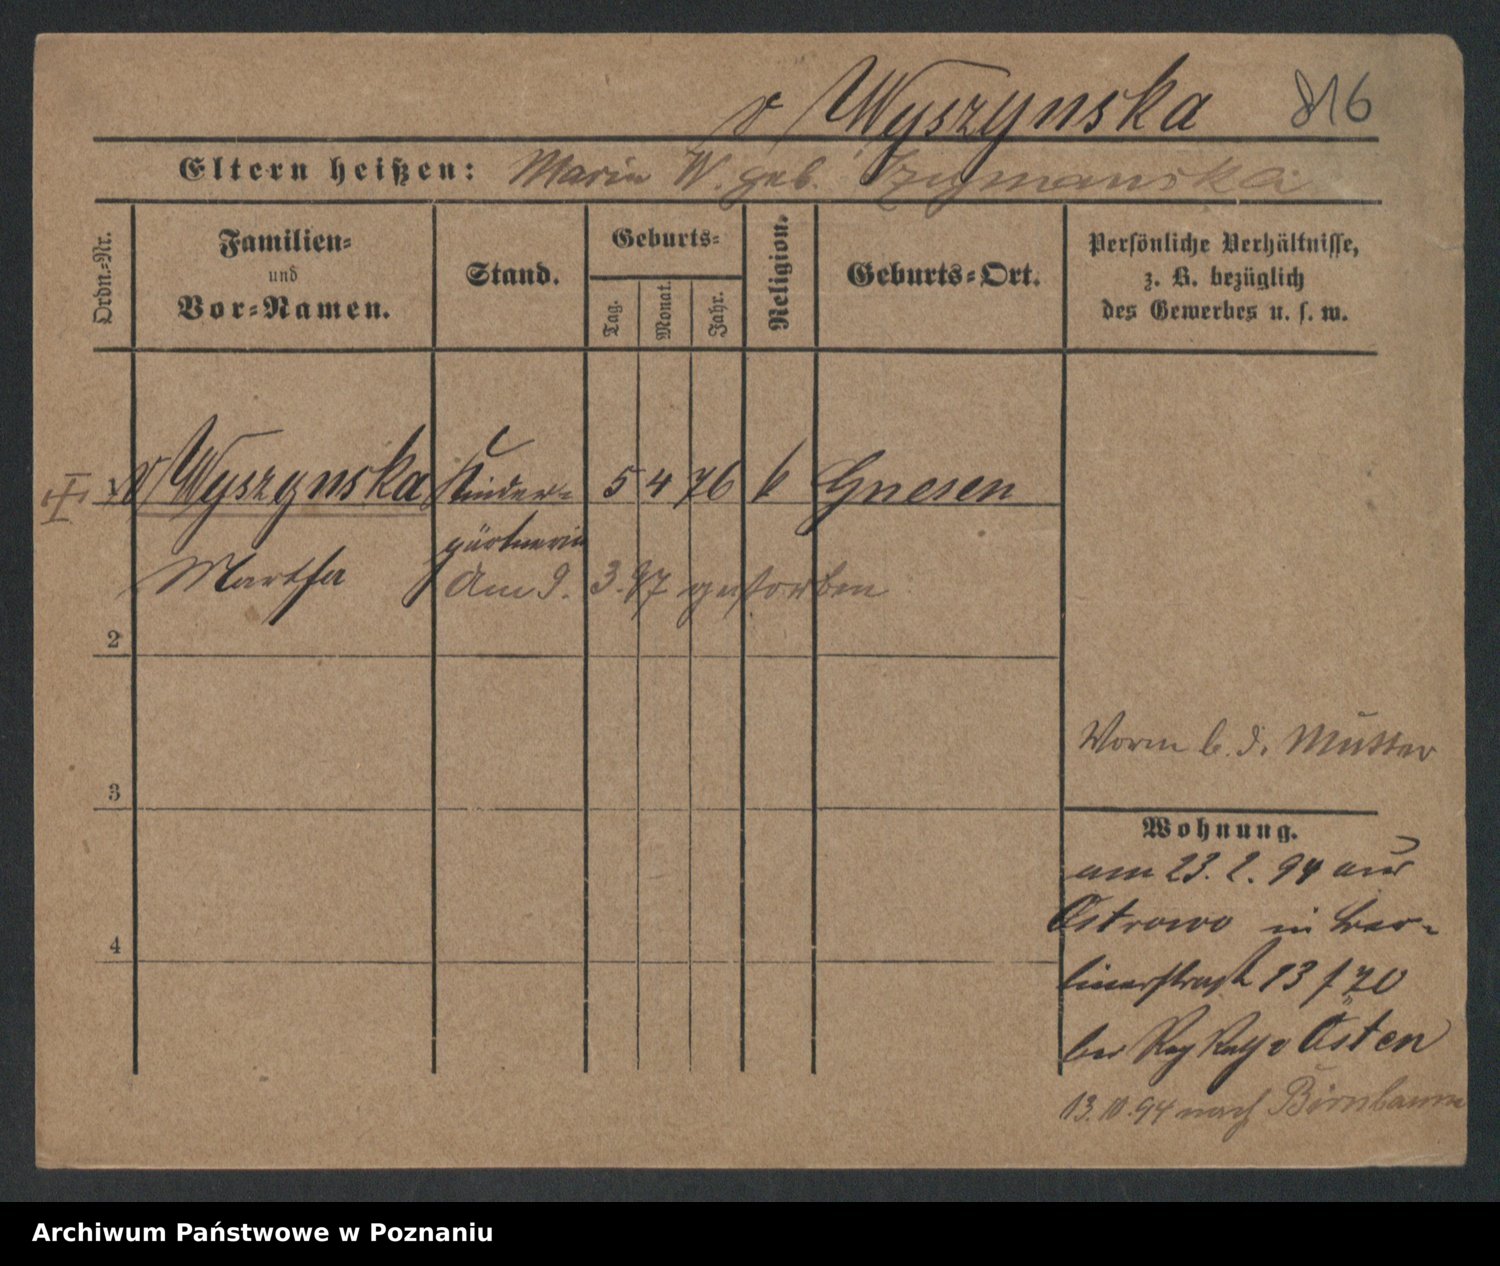 v Wyszynska 816
Eltern heißen: Maria W. geb. Szymanska
Ordn.-Nr.
Familien-
und
Vor-Namen.
Stand.
Geburts-
Tag.
Monat.
Jahr.
Religion.
Geburts-Ort.
Persönliche Verhältnisse,
z. B. bezüglich
des Gewerbes u. s. w.
1 v Wyszynska Kinder- 5 4 76 k Gnesen
gärtnerin
Martha Am 9. 3. 97 gestorben
2
3
4
Vorm b. d. Mutter
Wohnung.
am 23. 2. 94 aus
Ostrowo in Ber-
linerstraße 13 / 70
bei Reg Rath v Osten
13. 10. 94 nach Birnbaum
Archiwum Państwowe w Poznaniu